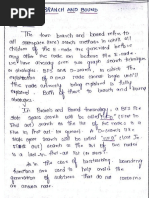 BRANCH AND BOUND
The term branch and bound refer to
all state space search methods in which all
children of the E-node are generated before
any other live node can become the E-node. we
have already seen two graph search strategies
BFS and D-search, in which the
exploration of a new node cannot begin until
the node currently being explored is fully
explored. Both of these
branch and bound strategies.
In Branch and Bound terminology, a BFS like
state space search will be called FIFO (First In
First Out) search as the list of live nodes is a
first in first out list or queue. A D-search like
state space search will be called LIFO (Last In
First Out) search in the list of live nodes
is a last in first out list or stack.
As in the case of backtracking, bounding
functions are used to help avoid the
generation of subtrees that do not contain
an answer node.